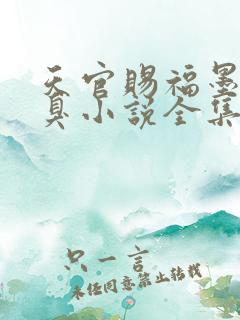 天官赐福墨
真小说全集
只一言
未经同意禁止转载